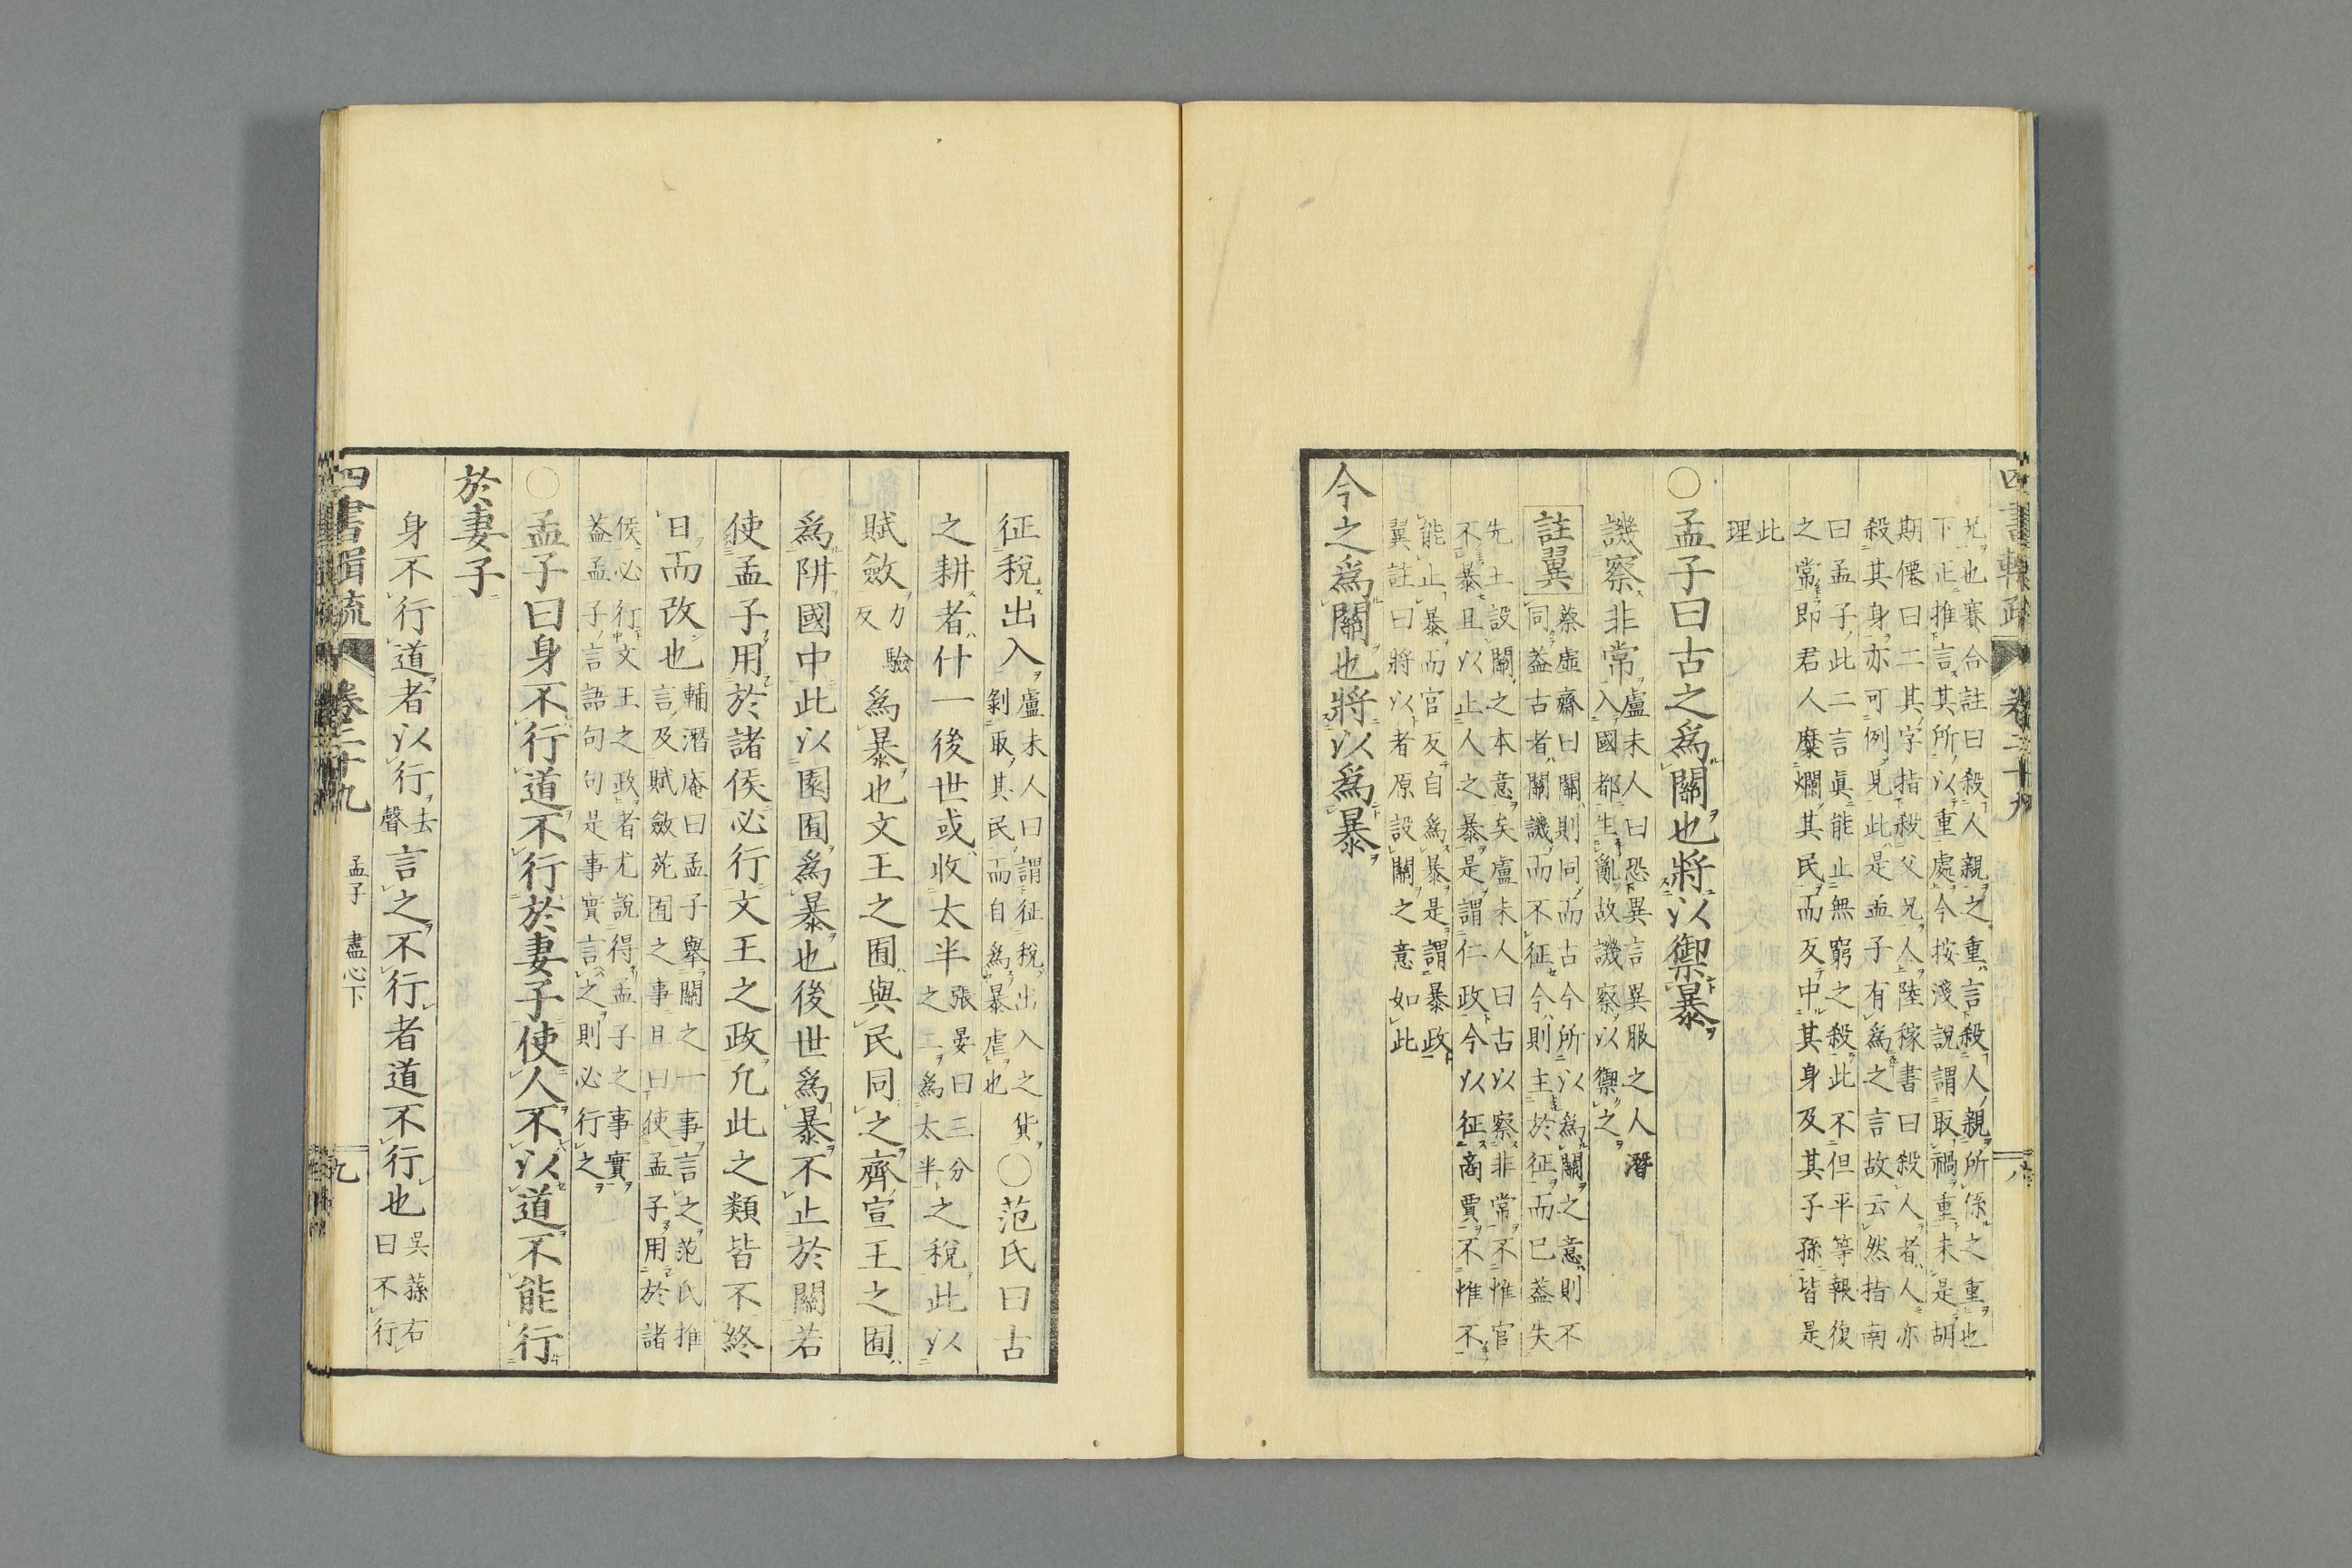 四書輯疏 卷二十九 八
兄也賽合註曰殺人親之重言殺人親所係之重也
下正推言其所以重處今按淺說謂取禍重未是胡
期僊曰二其字指殺父兄人陸稼書曰殺人者人亦
殺其身亦可例見此是孟子有為之言故云然指南
曰孟子此二言眞能止無窮之殺此不但平等報復
之常即君人糜爛其民而反中其身及其子孫皆是
此
理
○孟子曰古之為關也將以禦暴
譏察非常盧未人曰恐異言異服之人潛
入國都生亂故譏察以禦之
註翼蔡虛齋曰關則同而古今所以為關之意則不
同蓋古者關譏而不征今則主於征而已蓋失
先王設關之本意矣盧未人曰古以察非常不惟官
不暴且以止人之暴是謂仁政今以征商賈不惟不
能止暴而官反自為暴是謂暴政
翼註曰將以者原設關之意如此
今之為關也將以為暴
征稅出入盧未人曰謂征稅出入之貨
剝取其民而自為暴虐也○范氏曰古
之耕者什一後世或收太半張晏曰三分
之二為太半之稅此以
賦斂力驗
反為暴也文王之囿與民同之齊宣王之囿
為阱國中此以園囿為暴也後世為暴不止於關若
使孟子用於諸侯必行文王之政凡此之類皆不終
日而改也輔潛庵曰孟子舉關之一事言之范氏推
言及賦斂苑囿之事且曰使孟子用於諸
侯必行文王之政者尤說得孟子之事實
蓋孟子言語句句是事實言之則必行之
○孟子曰身不行道不行於妻子使人不以道不能行
於妻子
身不行道者以行去
聲言之不行者道不行也吳蓀右
曰不行
四書輯疏 卷二十九 孟子 盡心下 九